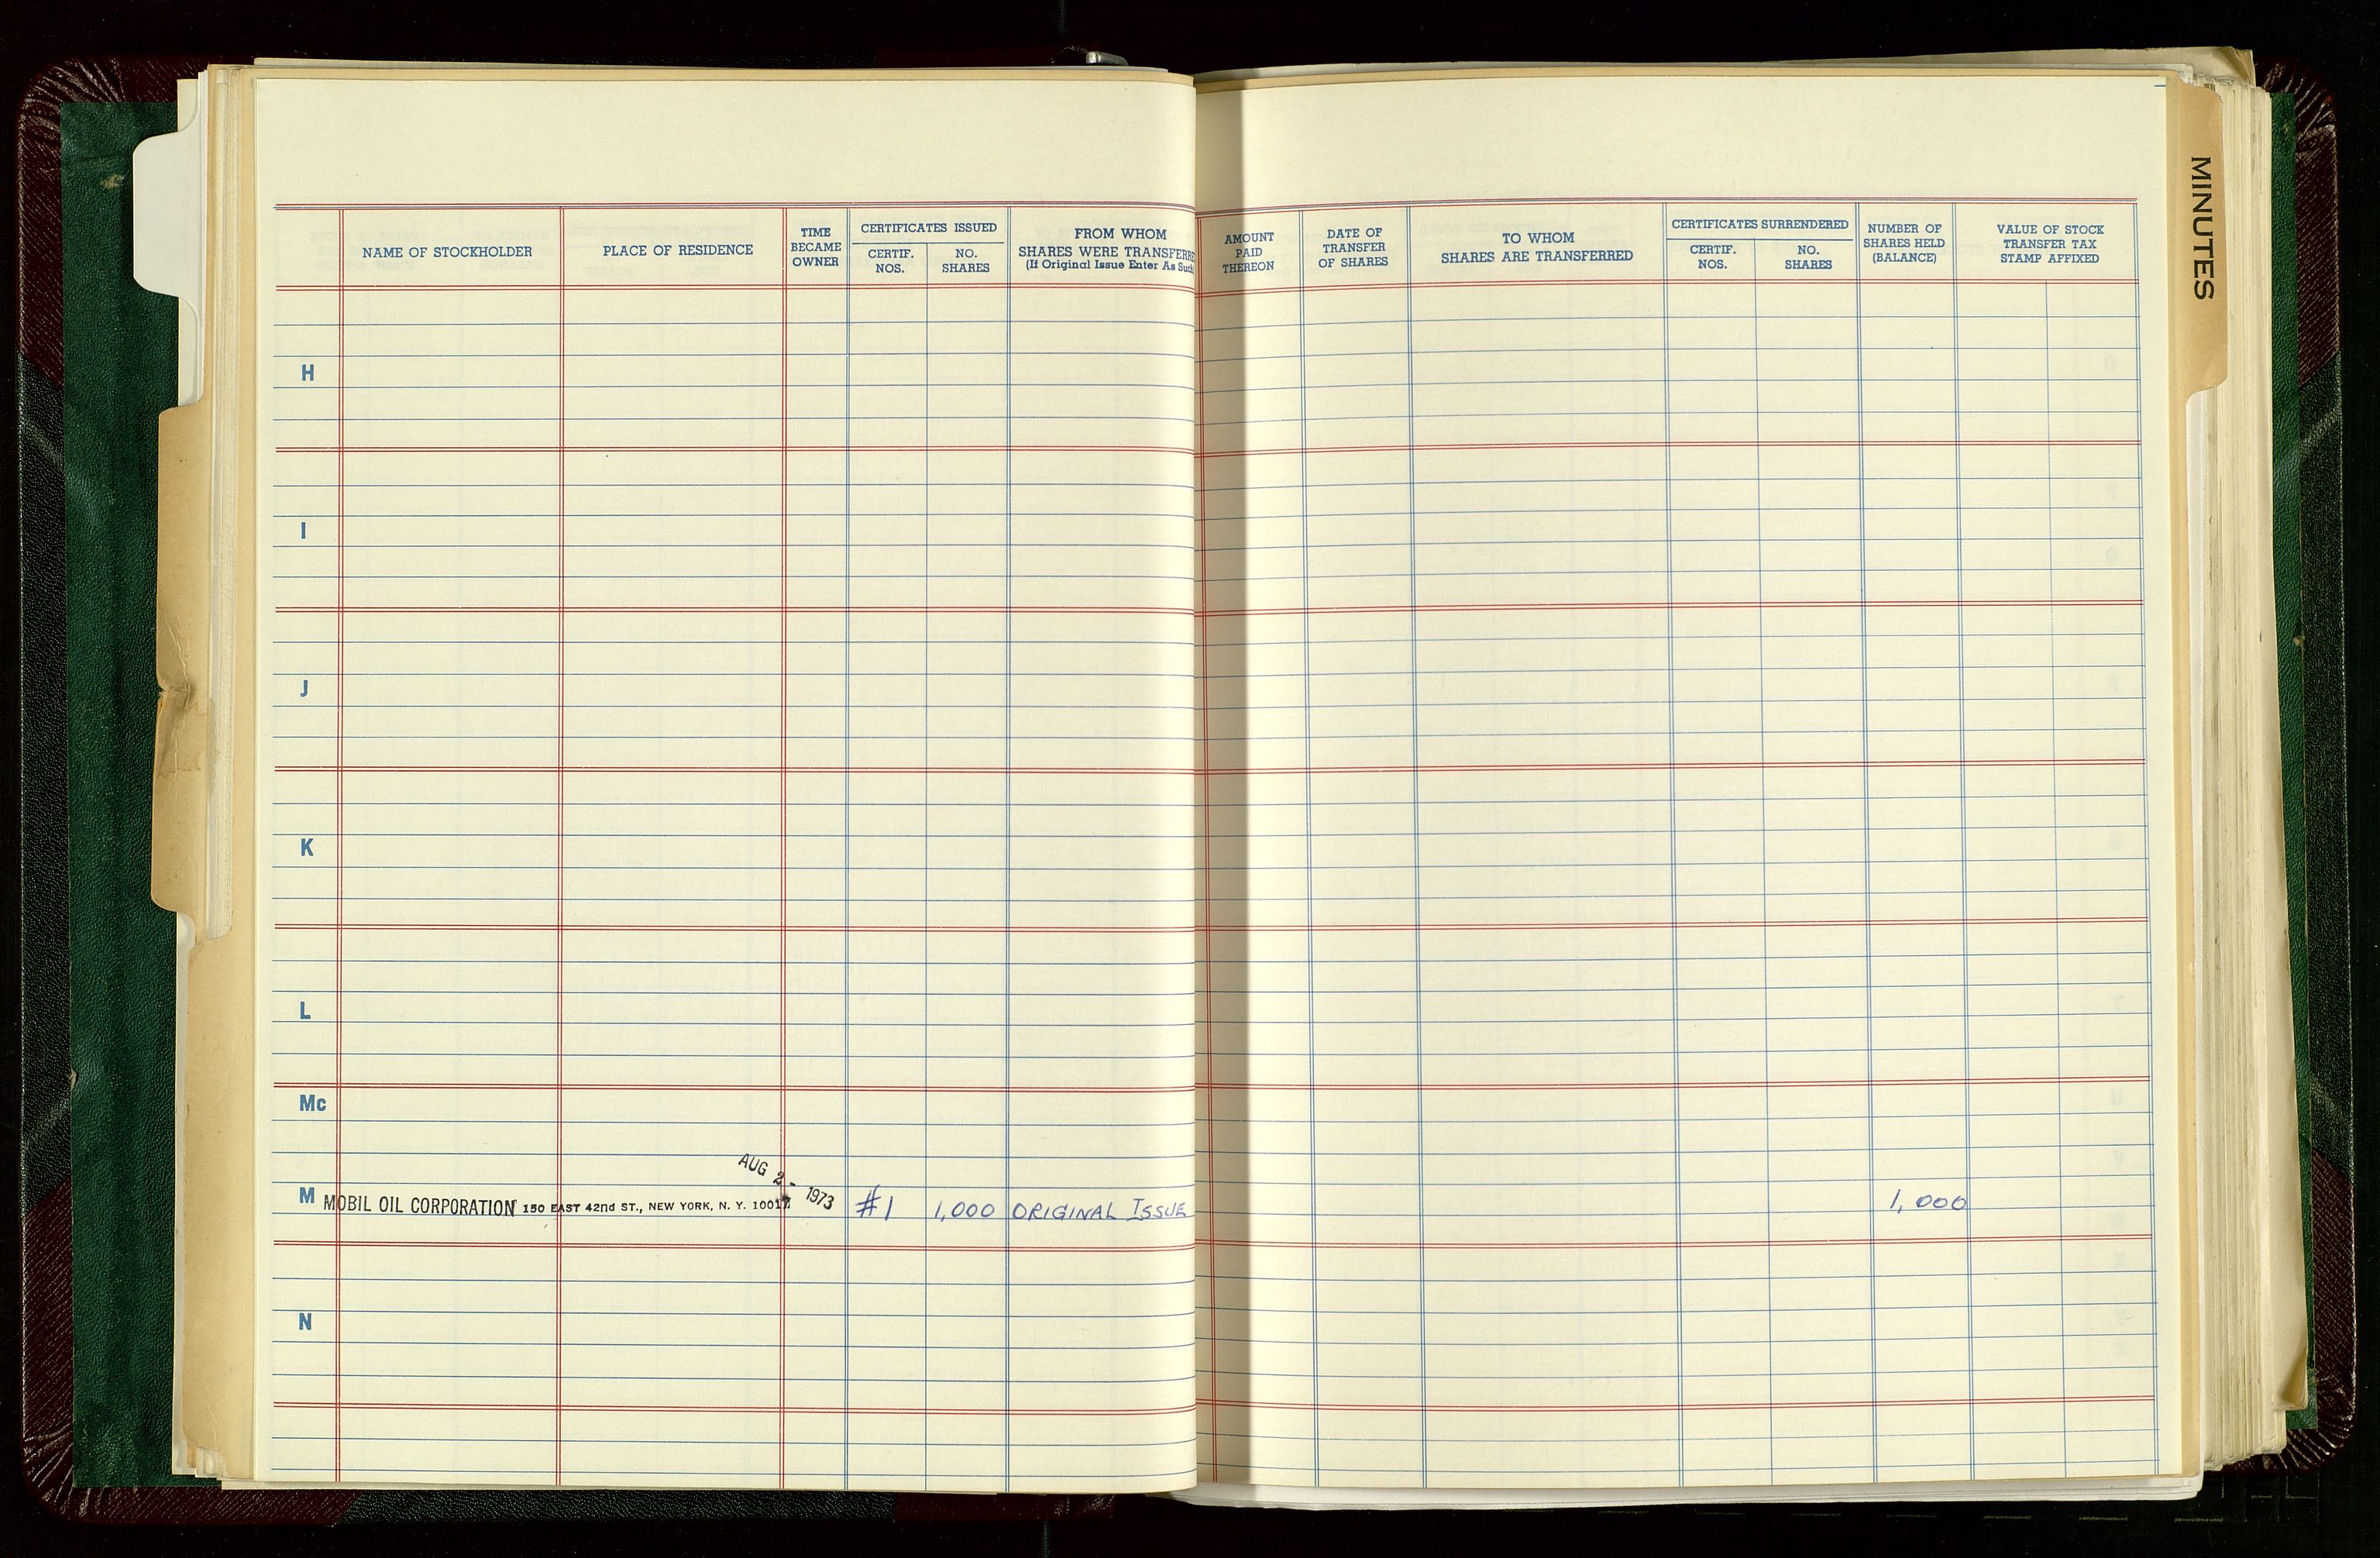 NAME OF STOCKHOLDER
PLACE OF RESIDENCE
TIME
BECAME
OWNER
CERTIFICATES ISSUED
CERTIF.
NOS.
NO.
SHARES
FROM WHOM
SHARES WERE TRANSFERRE
(If Original Issue Enter As Such
AMOUNT
PAID
THEREON
DATE OF
TRANSFER
OF SHARES
TO WHOM
SHARES ARE TRANSFERRED
CERTIFICATES SURRENDERED
CERTIF.
NOS.
NO.
SHARES
NUMBER OF
SHARES HELD
(BALANCE)
VALUE OF STOCK
TRANSFER TAX
STAMP AFFIXED
MINUTES
H
I
J
K
L
Mc
AUG 2 - 1973
M MOBIL OIL CORPORATION 150 EAST 42nd ST., NEW YORK, N. Y. 10017 #1 1,000 ORIGINAL ISSUE 1,000
N